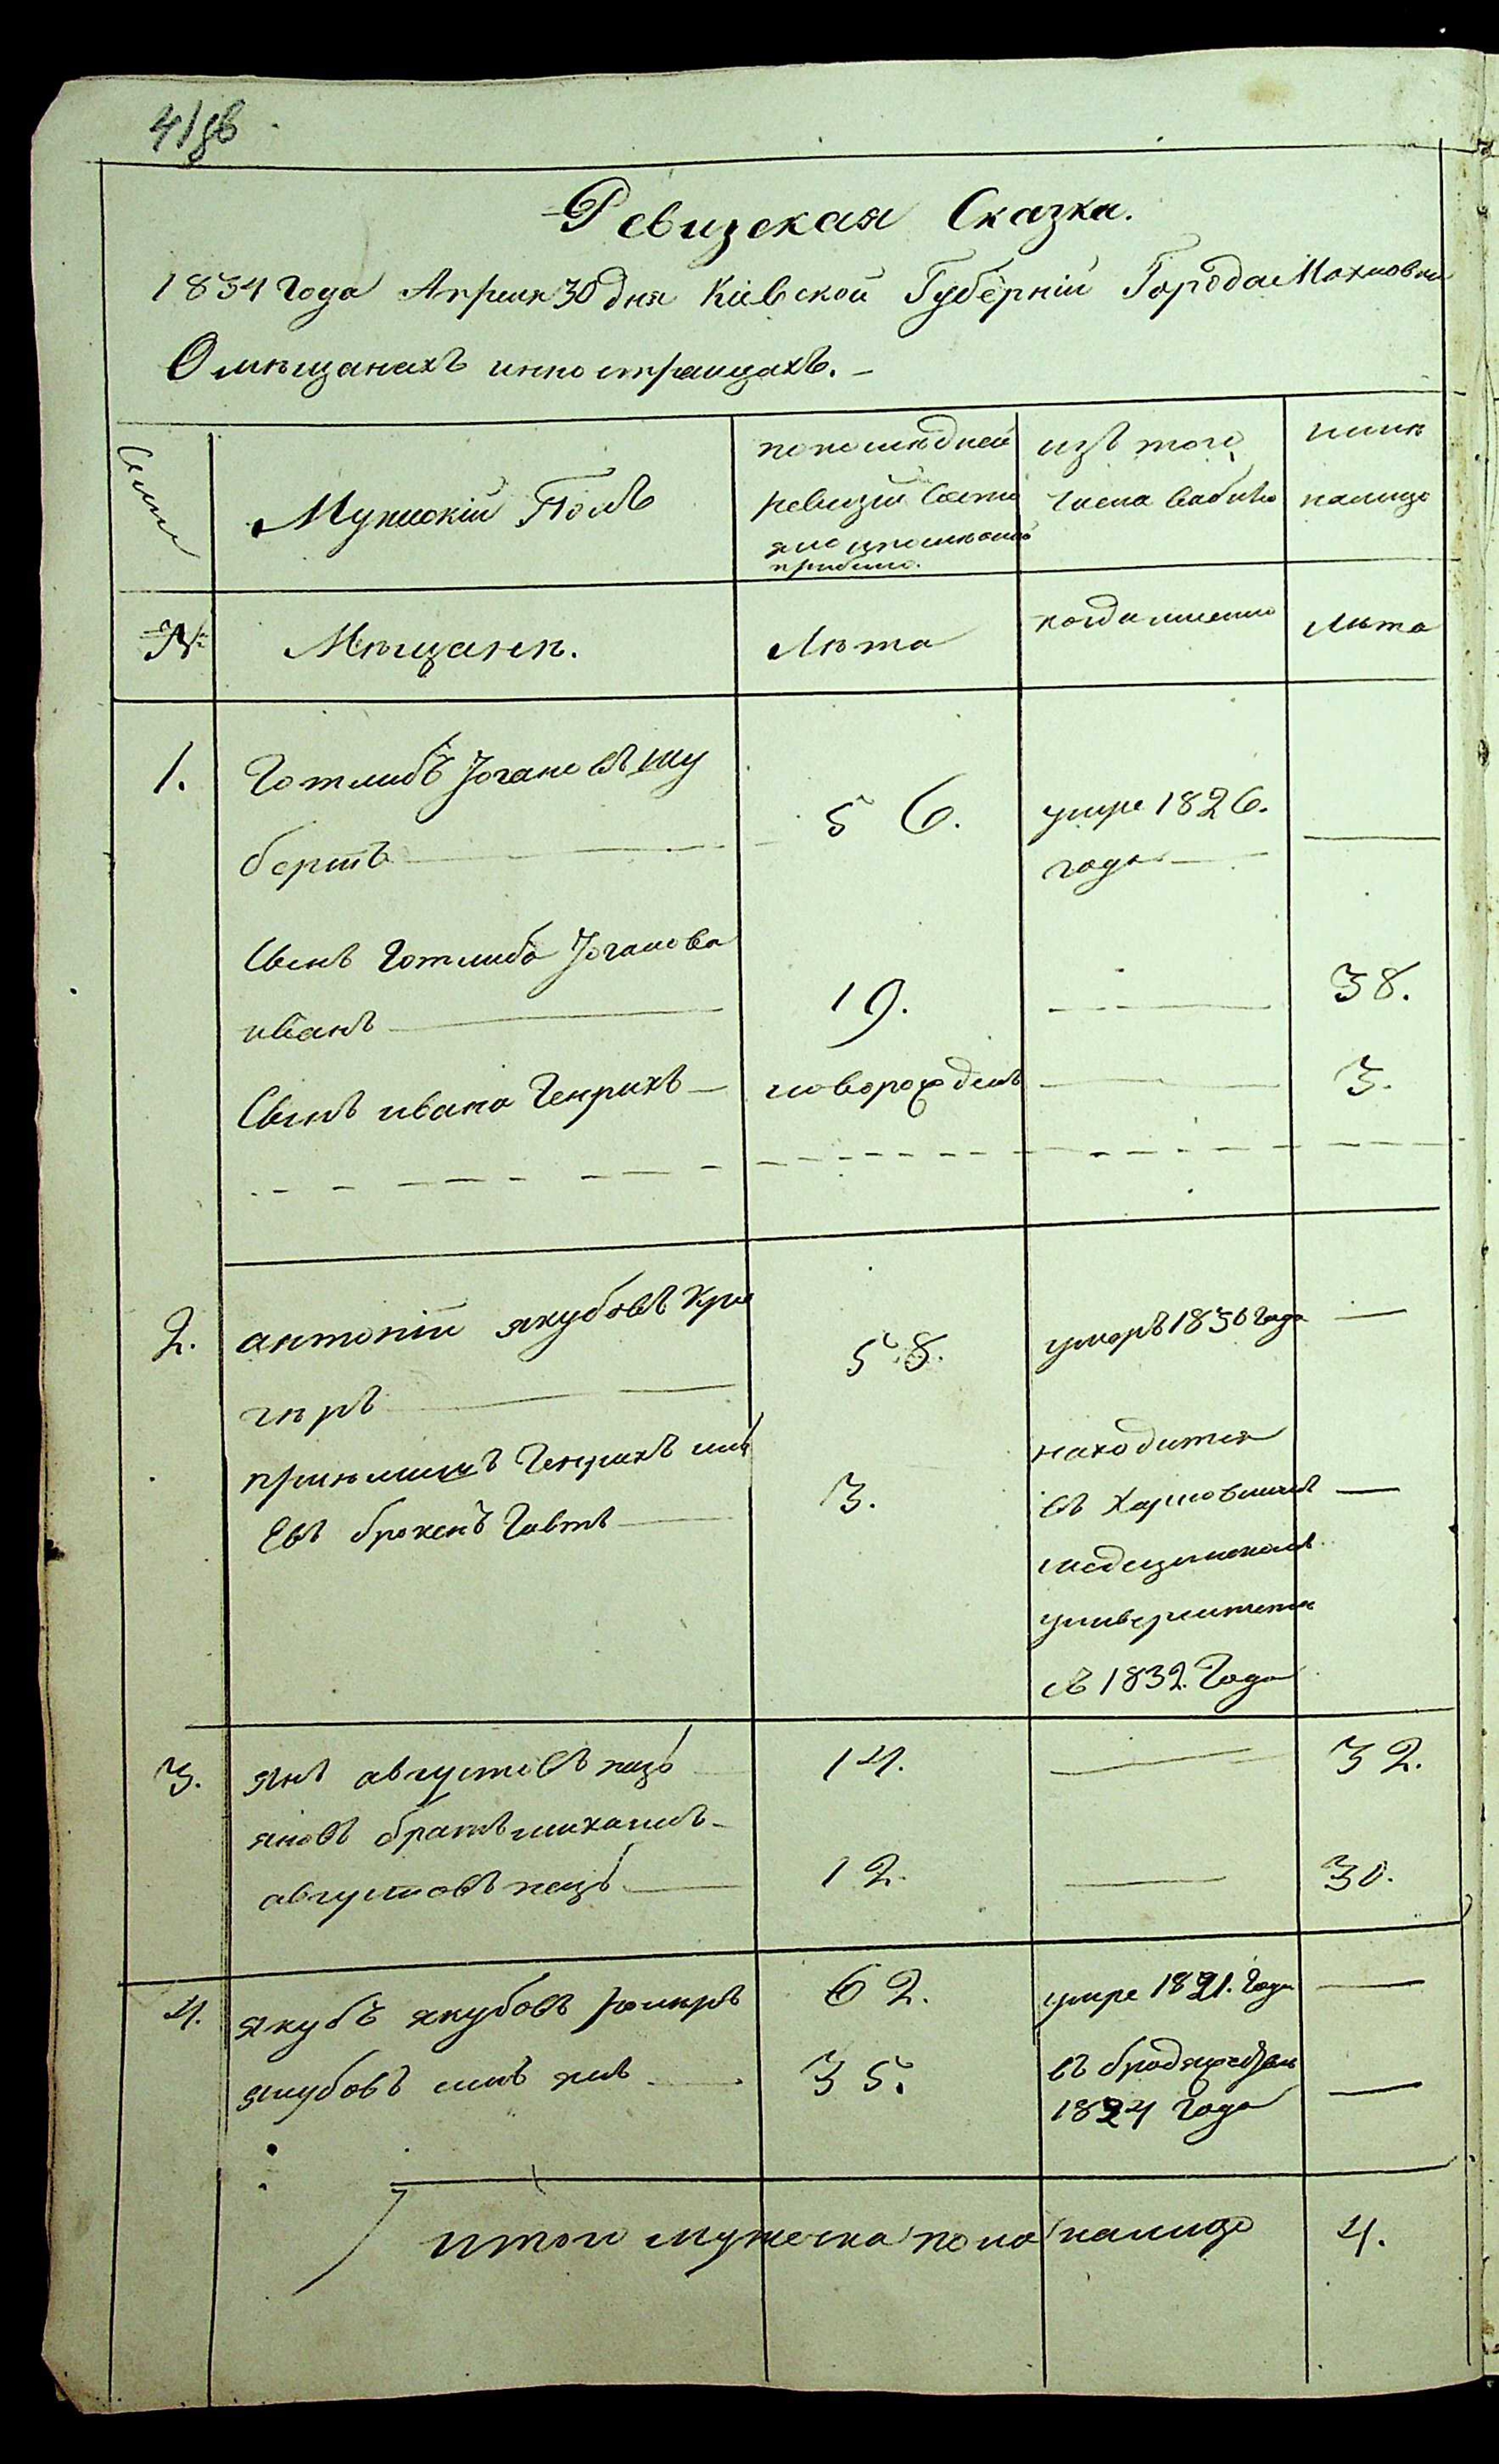 Ревизская Сказка.
1834 года Апреля 30 дня Кіевской Губерніи Города Махновки
О мѣщанахъ иностранцахъ.
Мужескій Полъ
по послѣдней
ревизіи состо
яло и послѣ оной
прибыло.
изъ того
числа выбыло
ныне
налицо
Семьи
№
Мѣщане.
Лѣта
когда имянно
Лѣта
1.
Готлибъ Іогановъ Шу
бертъ
5 6.
умре 1826.
года
Сынъ Готлиба Іоганова
иванъ
19.
38.
Сынъ ивана Генрихъ
новорожденъ
3.
2.
антоній якубовъ Кри
геръ
58.
умеръ 1830 года
Генрихъ
3.
находится
въ Харковском
медецинскомъ
университетѣ
съ 1832. Года
3.
янъ августовъ пацъ
14.
32.
яновъ братъ михаилъ
августовъ пацъ
12.
30.
4.
якубъ якубовъ
62.
умре 1821. Года
якубовъ сынъ янъ
35.
въ бродяжест
1824 Года
итого мужеска пола налицо
4.